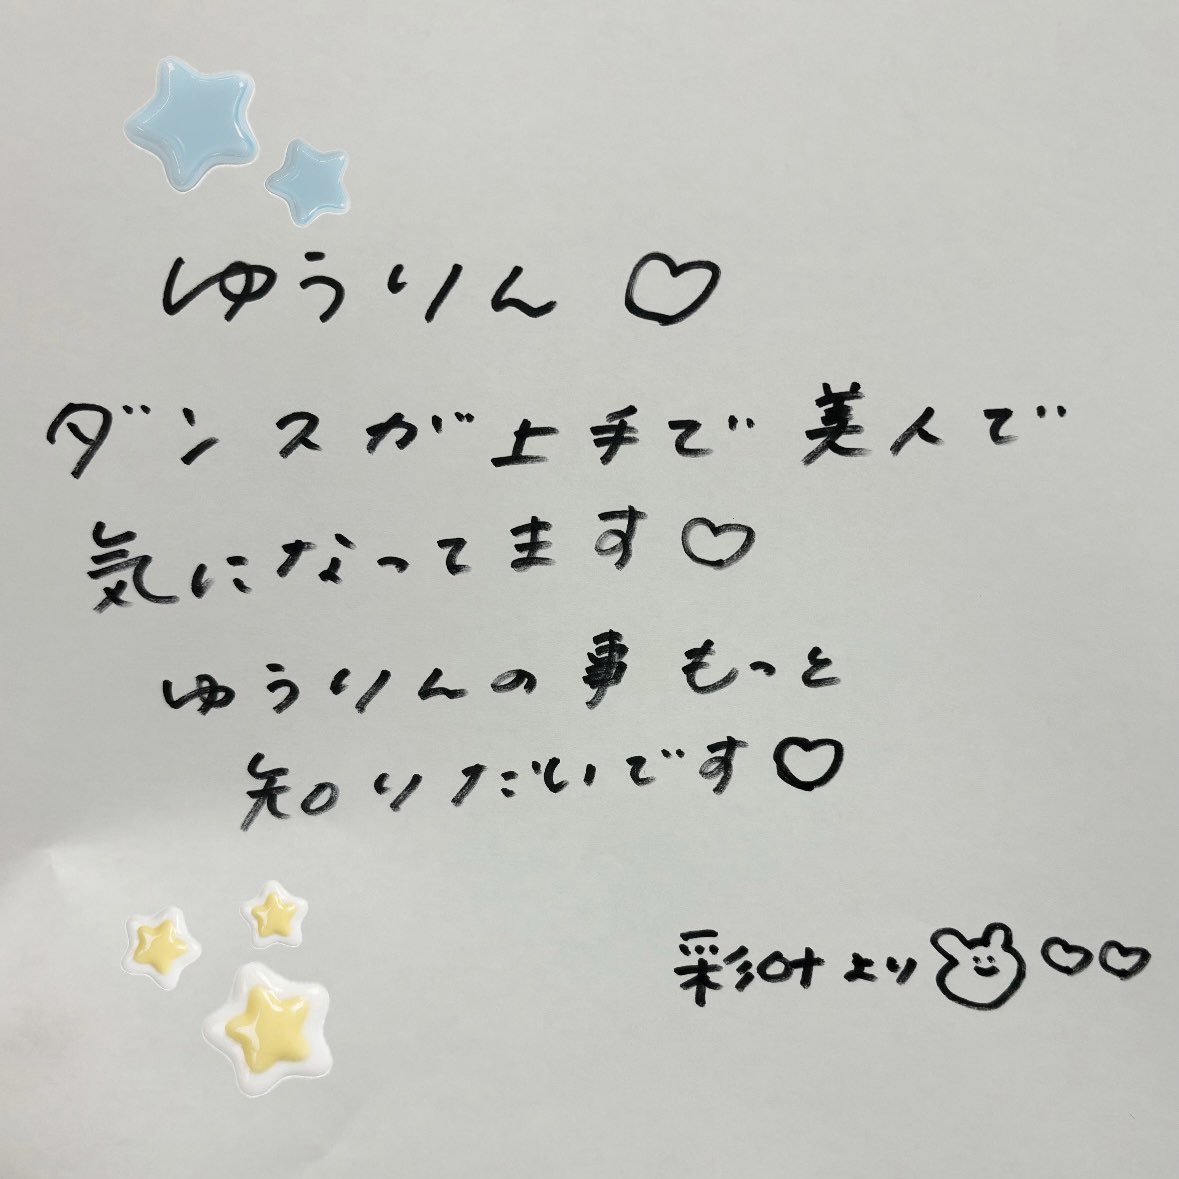 ゆうりん♡
ダンスが上手で美人で
気になってます♡
ゆうりんの事もっと
知りたいです♡
彩叶より♡♡